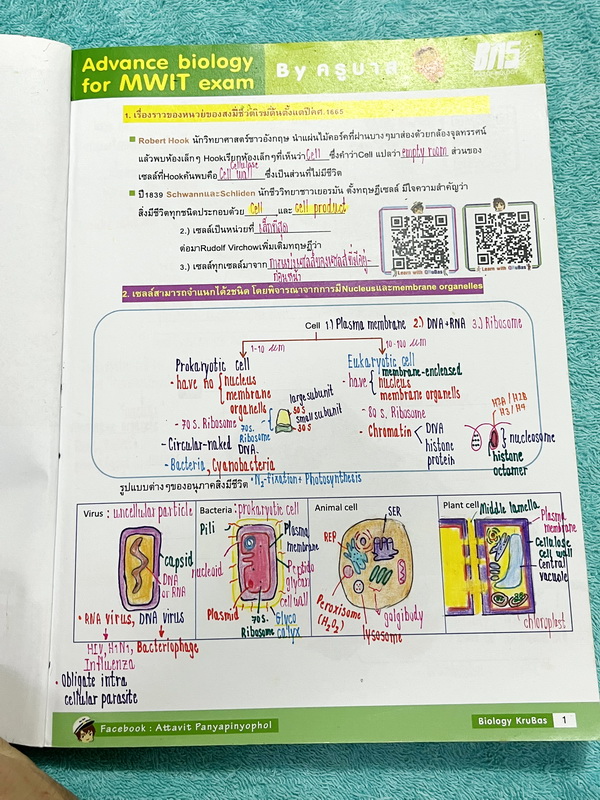 Advance biology
for MWIT exam
By ครูบาส
BAS
1. เรื่องราวของหน่วยของสิ่งมีชีวิตเริ่มต้นตั้งแต่ปีคศ.1665
Robert Hook นักวิทยาศาสตร์ชาวอังกฤษ นำแผ่นไม้คอร์คที่ฝานบางๆมาส่องด้วยกล้องจุลทรรศน์
แล้วพบห้องเล็กๆ Hookเรียกห้องเล็กๆที่เห็นว่า Cell ซึ่งคำว่าCell แปลว่า empty room ส่วนของ
Cellulose
เซลล์ที่Hookค้นพบคือ Cell wall ซึ่งเป็นส่วนที่ไม่มีชีวิต
ปี1839 SchwannและSchliden นักชีววิทยาชาวเยอรมัน ตั้งทฤษฎีเซลล์ มีใจความสำคัญว่า
สิ่งมีชีวิตทุกชนิดประกอบด้วย Cell และ cell product
2.) เซลล์เป็นหน่วยที่ เล็กที่สุด
ต่อมาRudolf Virchowเพิ่มเติมทฤษฎีว่า
3.) เซลล์ทุกเซลล์มาจาก การแบ่งเซลล์ของเซลล์ที่มีอยู่-
ก่อนหน้า
Learn with
Learn with
2. เซลล์สามารถจำแนกได้2ชนิด โดยพิจารณาจากการมีNucleusและmembrane organelles
Cell 1) Plasma membrane 2.) DNA+RNA 3.) Ribosome
1-10 μm
10-100 μm
Prokaryotic cell
- have no { nucleus
membrane
organells
- 70 s. Ribosome
70s. Ribosome
large subunit
50 s
small subunit
30 s
- Circular-naked DNA.
- Bacteria, Cyanobacteria
• N2-fixation + Photosynthesis
Eukaryotic cell
membrane-encleased
- have { nucleus
membrane organells
- 80 s. Ribosome
- Chromatin < DNA
histone
protein
H2A / H2B
H3 / H4
nucleosome
histone
octamer
รูปแบบต่างๆของอนุภาคสิ่งมีชีวิต
Virus : uncellular particle
capsid
DNA
or RNA
• RNA virus, DNA virus
HIV, H1N1, Bacteriophage
Influenza
• Obligate intra
cellular parasite
Bacteria : prokaryotic cell
Pili
Plasma
membrane
nucleoid
Peptido
glycan
cell wall
Plasmid
70s.
Ribosome
Glyco
calyx
Animal cell
SER
RER
Peroxisome
(H2O2)
lysosome
golgibody
Plant cell
Middle lamella
Plasma
membrane
Cellulose
cell wall
Central
vacuole
chloroplast
Facebook : Attavit Panyapinyophol
Biology KruBas
1